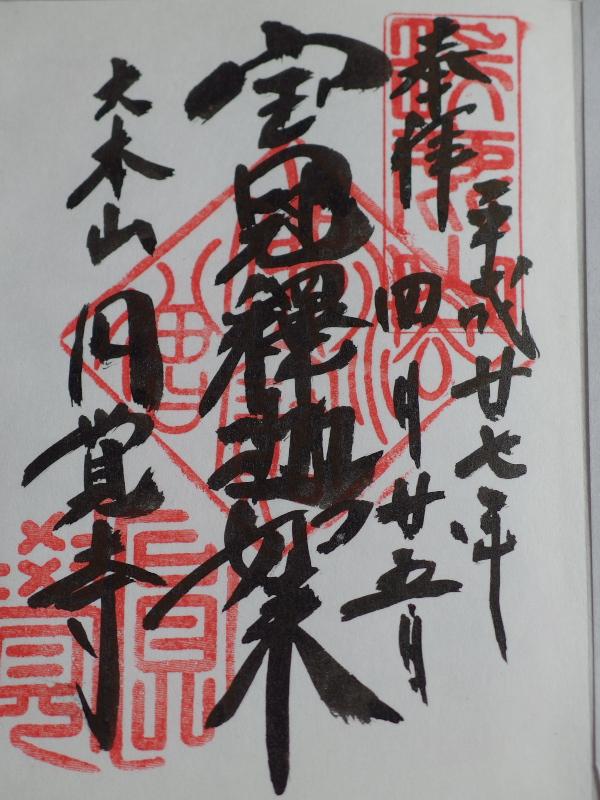 奉拝
平成廿七年
四月廿五日
宝冠釋迦如来
大本山
円覚寺